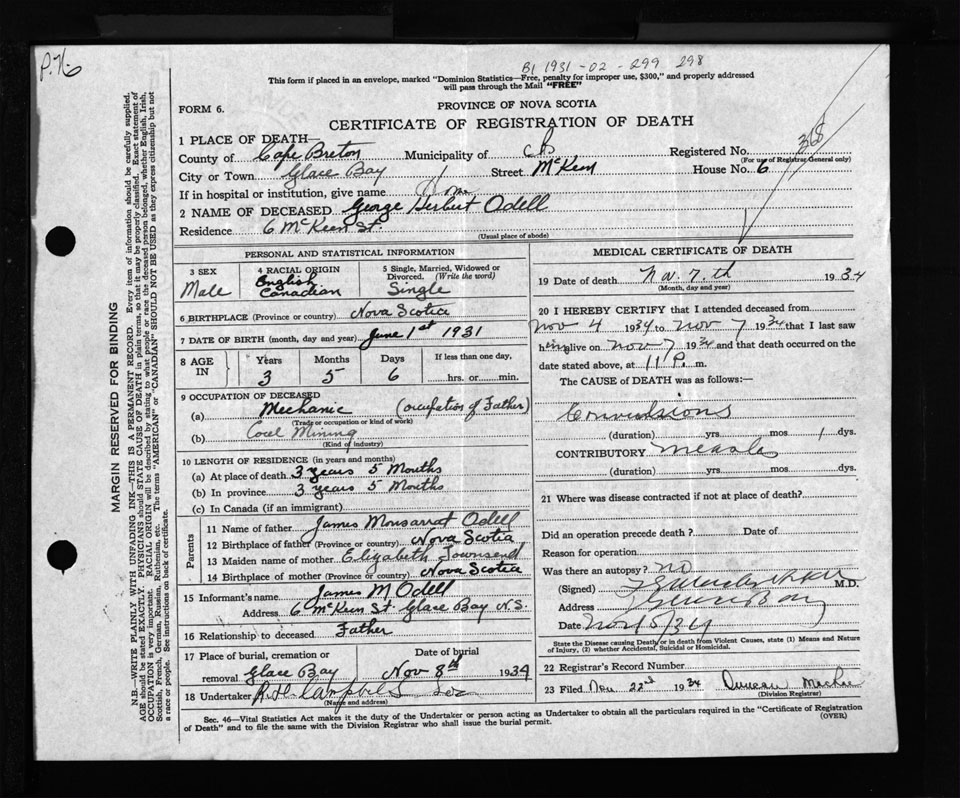 P.H.
B1 1931-02-299 298
This form if placed in an envelope, marked "Dominion Statistics—Free, penalty for improper use, $300," and properly addressed
will pass through the Mail "FREE"
FORM 6.
PROVINCE OF NOVA SCOTIA
CERTIFICATE OF REGISTRATION OF DEATH
1 PLACE OF DEATH—
County of Cape Breton Municipality of C B Registered No. 368
(For use of Registrar General only)
City or Town Glace Bay Street McKeen House No. 6
If in hospital or institution, give name Home
2 NAME OF DECEASED George Herbert Odell
Residence 6 McKeen St.
(Usual place of abode)
PERSONAL AND STATISTICAL INFORMATION
3 SEX Male
4 RACIAL ORIGIN English Canadian
5 Single, Married, Widowed or Divorced. (Write the word) Single
6 BIRTHPLACE (Province or country) Nova Scotia
7 DATE OF BIRTH (month, day and year) June 1st 1931
8 AGE IN Years 3 Months 5 Days 6 If less than one day, hrs. or min.
9 OCCUPATION OF DECEASED
(a) Mechanic (occupation of Father)
(Trade or occupation or kind of work)
(b) Coal Mining
(Kind of industry)
10 LENGTH OF RESIDENCE (in years and months)
(a) At place of death 3 years 5 Months
(b) In province 3 years 5 Months
(c) In Canada (if an immigrant)
Parents
11 Name of father James Monsarrat Odell
12 Birthplace of father (Province or country) Nova Scotia
13 Maiden name of mother Elizabeth Townsend
14 Birthplace of mother (Province or country) Nova Scotia
15 Informant's name James M Odell
Address 6 McKeen St Glace Bay N.S.
16 Relationship to deceased Father
17 Place of burial, cremation or removal Glace Bay Date of burial Nov 8th 1934
18 Undertaker R.H. Campbell
(Name and address)
MEDICAL CERTIFICATE OF DEATH
19 Date of death Nov. 7.th 1934
(Month, day and year)
20 I HEREBY CERTIFY that I attended deceased from
Nov 4 1934 to Nov 7 1934 that I last saw
him alive on Nov 7 1934 and that death occurred on the
date stated above, at 11 P. m.
The CAUSE OF DEATH was as follows:—
Convulsions
(duration) yrs. mos 1 dys.
CONTRIBUTORY Measles
(duration) yrs. mos. dys.
21 Where was disease contracted if not at place of death?
Did an operation precede death? Date of
Reason for operation
Was there an autopsy? no
(Signed) M.D.
Address Glace Bay
Date Nov
State the Disease causing Death, or in death from Violent Causes, state (1) Means and Nature
of Injury, (2) whether Accidental, Suicidal or Homicidal.
22 Registrar's Record Number
23 Filed Nov 22nd 1934 Duncan
(Division Registrar)
Sec. 46—Vital Statistics Act makes it the duty of the Undertaker or person acting as Undertaker to obtain all the particulars required in the "Certificate of Registration
of Death" and to file the same with the Division Registrar who shall issue the burial permit.
(OVER)
MARGIN RESERVED FOR BINDING
N.B.—WRITE PLAINLY WITH UNFADING INK—THIS IS A PERMANENT RECORD. Every item of information should be carefully supplied.
AGE should be stated EXACTLY. PHYSICIANS should STATE CAUSE OF DEATH in plain terms, so that it may be properly classified. Exact statement of
OCCUPATION is very important. RACIAL ORIGIN will be described by stating to what people or race the deceased person belonged, whether English, Irish,
Scottish, French, German, Russian, Ruthenian, etc. The terms "AMERICAN" or "CANADIAN" SHOULD NOT BE USED as they express citizenship but not
a race or people. See instructions on back of certificate.